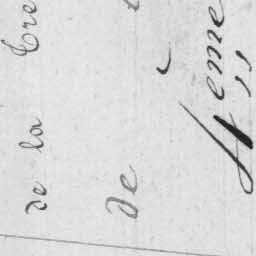 de la Cre
de
4eme